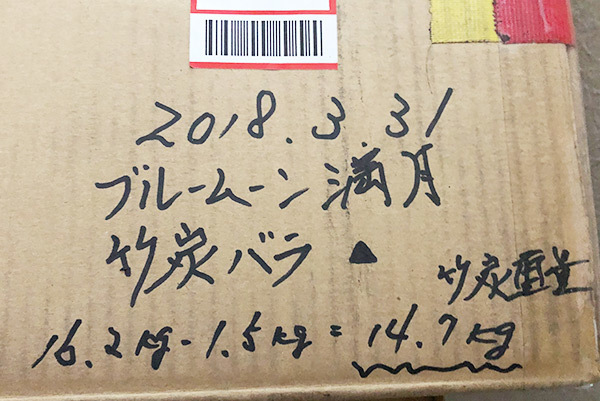 2018.3.31
ブルームーン満月
竹炭バラ▲
竹炭重量
16.2kg-1.5kg=14.7kg